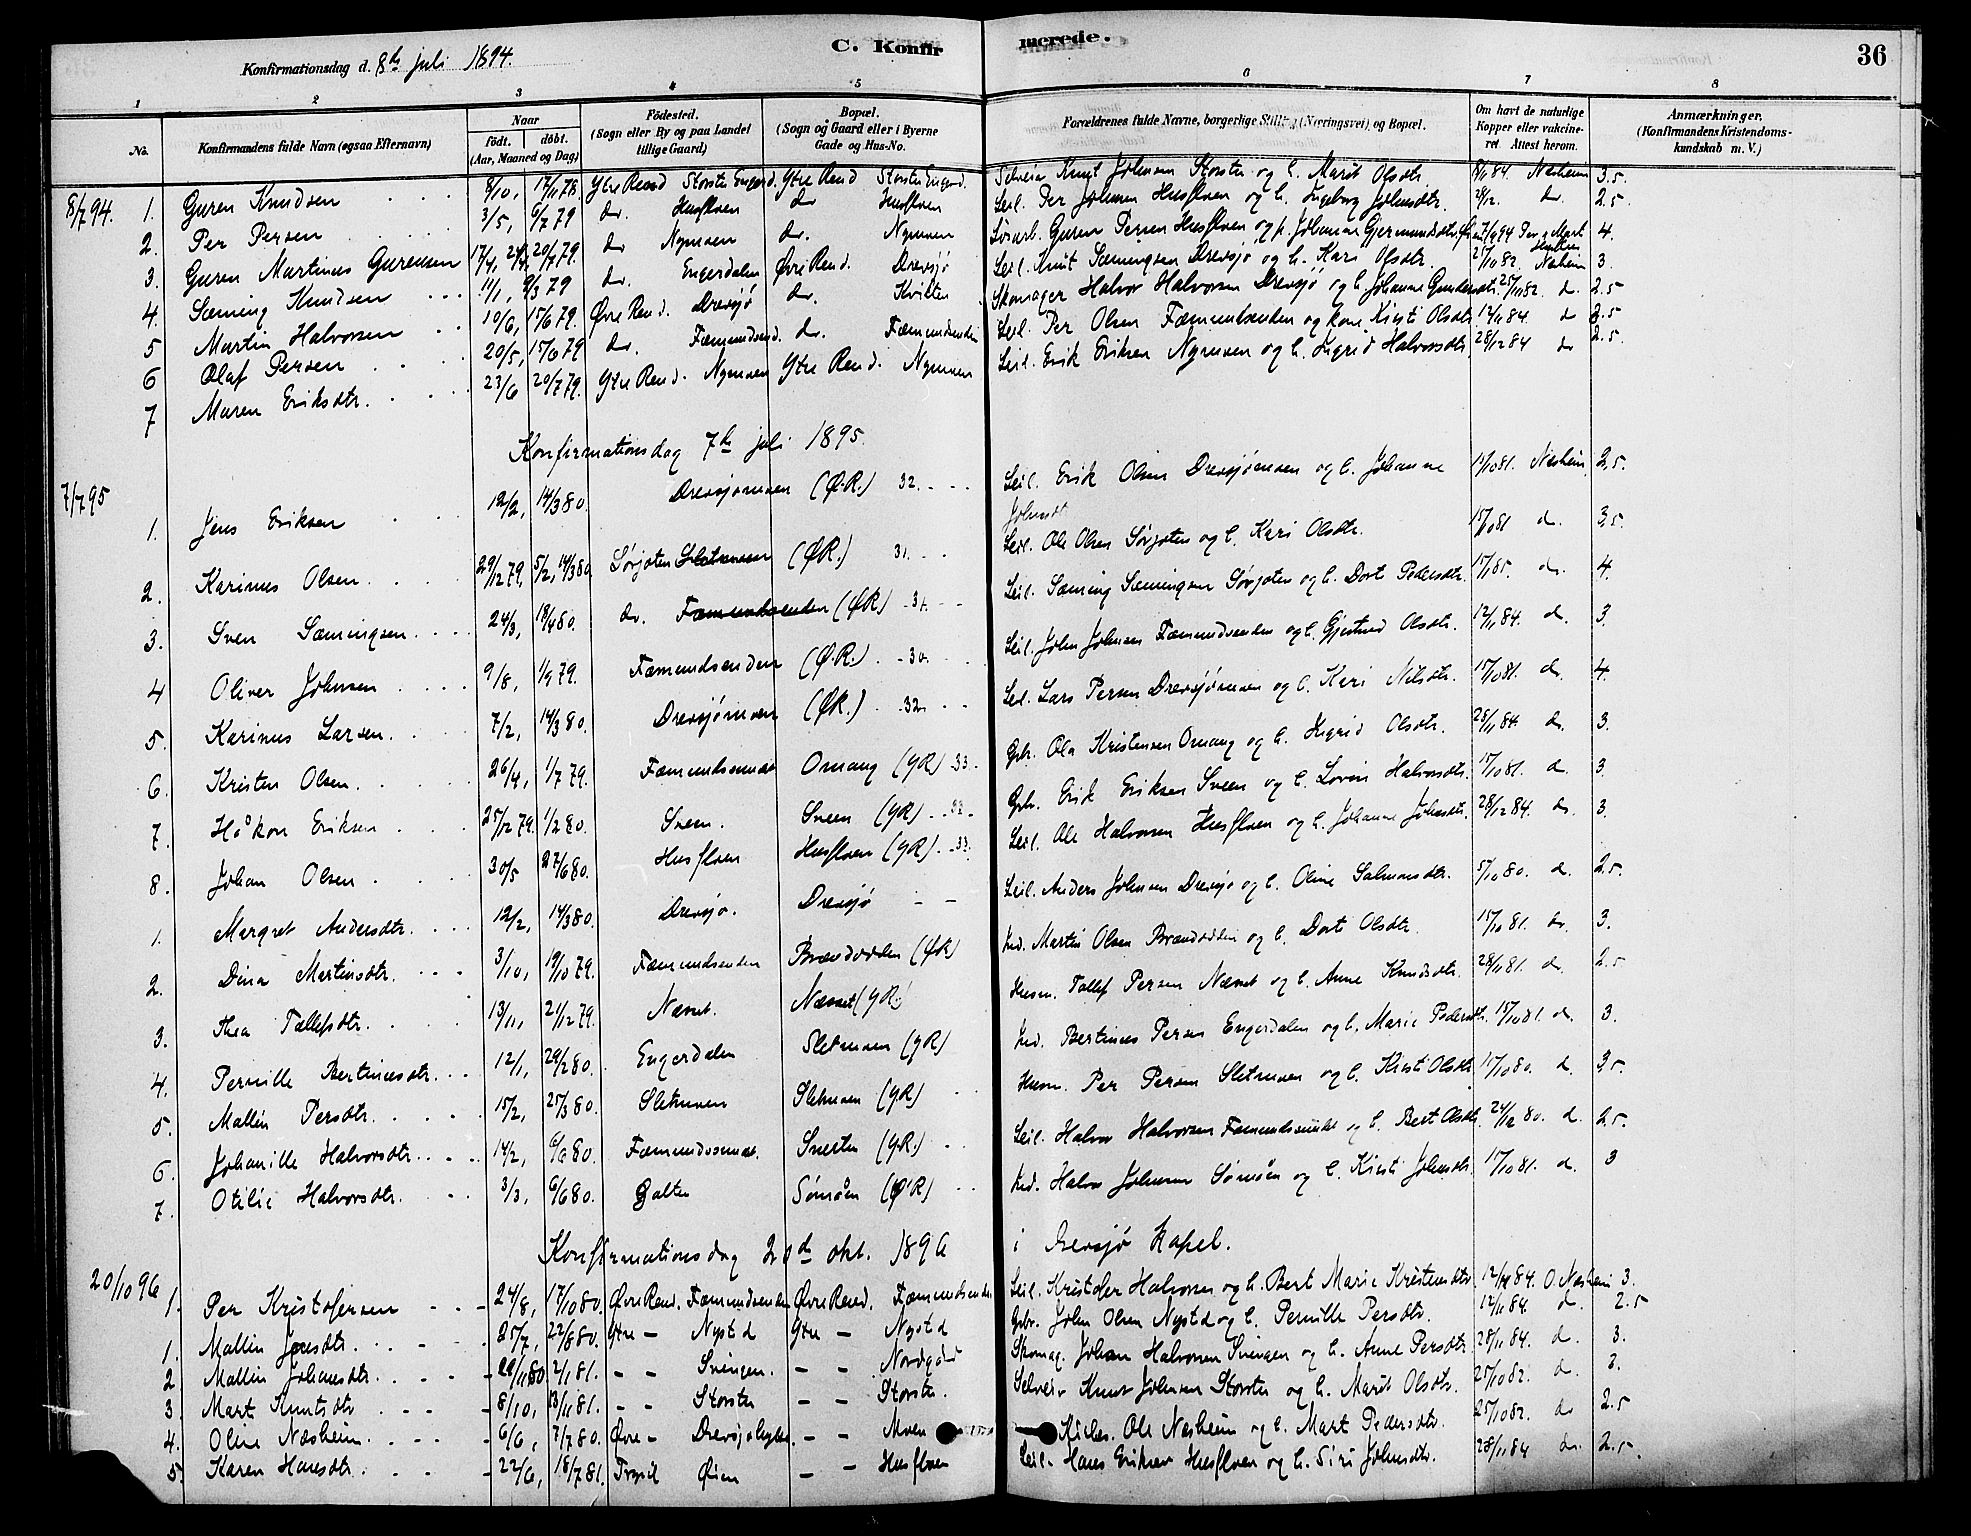 C. Konfirmerede. 36
Konfirmationsdag d. 8de juli 1894.
1 2 3 4 5 6 7 8
No. Konfirmandens fulde Navn (ogsaa Efternavn) Naar födt. döbt. (Aar, Maaned og Dag) Födested. (Sogn eller By og paa Landet tillige Gaard) Bopæl. (Sogn og Gaard eller i Byerne Gade og Hus-No. Forældrenes fulde Navne, borgerlige Stilling (Næringsvei) og Bopæl. Om havt de naturlige Kopper eller vakcineret. Attest herom. Anmærkninger. (Konfirmandens Kristendomskundskab m. V.)
8/7 94. 1. Guren Knudsen 8/10, 17/11 78. Ytre Rend Storsten Engerd. Ytre Rend Storsten Engerd. Selveier Knut Johnsen Storsten og h. Marit Olsdtr. 8/1 84 Næsheim 3.5.
2. Per Persen 3/5, 6/7 79 do. Husfloen do Husfloen Leil. Per Johnsen Husfloen og h. Ingeborg Johnsdtr. 28/12. do. 2.5.
3. Guren Martinus Gurensen 17/4, 20/7 79. do Nymoen do. Nymoen Løsarb. Guren Persen Husfloen og p. Johanne Gjermundsdtr 4.
4. Sæming Knudsen 11/1, 9/3 79 do. Engerdalen Øvre Rend. Drevsjø Leil. Knut Sæmingsen Drevsjø og h. Kari Olsdtr. 25/10 82. Næsheim 3.
5 Martin Halvorsen 10/6, 15/6 79. Øvre Rend. Drevsjø do. Kvilten Skomager Halvor Halvorsen Drevsjø og h. Johanne Gundersdtr. 25/10 82. do. 2.5
6 Olaf Persen 20/5, 15/6 79 do. Fæmundsend. do. Fæmundsenden Leil. Per Olsen Fæmundsenden og kone Kirsti Olsdtr. 12/11 84. do 3.5
7 Maren Eriksdtr. 23/6 20/7 79. Ytre Rend. Nymoen Ytre Rend. Nymoen Leil. Erik Eriksen Nymoen og h. Ingrid Halvorsdtr 28/12 84 do 2.5.
Konfirmationsdag 7de juli 1895.
7/7 95
1. Jens Eriksen 12/2, 14/3 80. Drevsjømoen (Ø.R.) 32. Leil. Erik Olsen Drevsjømoen og h. Johanne Johnsdt 15/10 81. Næsheim 2.5.
2. Karinus Olsen 29/12 79, 5/2, 14/3 80 Sørjoten Sletmoen (ØR.) 31. Leil. Ole Olsen Sørjoten og h. Kari Olsdtr. 15/10 81 do. 3.5.
3. Sven Sæmingsen 24/3, 18/4 80. do. Fæmundsenden (ØR) 31. Leil. Sæming Sæmingsen Sørjoten og h. Dort Pedersdtr. do. 4.
4 Oliver Johnsen 9/8, 1/9 79. Fæmundsenden (Ø.R.) 30. Leil. John Johnsen Fæmundsenden og h. Gjertrud Olsdtr. 12/11 84. do. 3.
5. Karinus Larsen 7/2, 14/3 80. Drevsjømoen (ØR.) 32. Leil. Lars Persen Drevsjømoen og h. Kari Nilsdtr. 15/10 81. do. 4.
6. Kristen Olsen 26/4, 1/7 79. Fæmundssundet Omang (YR) 33. Gbr. Ola Kristensen Omang og h. Ingrid Olsdtr. 28/11 84. do. 3
7. Håkon Eriksen 25/12 79. 1/2 80. Sveen. Sveen (YR) 33. Gbr. Erik Eriksen Sveen og h. Lovise Halvorsdtr. 15/10 81. d. 3.
8. Johan Olsen 30/5 27/6 80. Husfloen Husfloen (YR) 33. Leil. Ole Halvorsen Husfloen og h. Johanne Johnsdtr. 28/12 84. do. 3
1. Margret Andersdtr. 12/2, 14/3 80. Drevsjø. Drevsjø Leil. Anders Johnsen Drevsjø og h. Oline Salmonsdtr. 5/10 80. d. 2.5.
2. Dina Martinsdtr. 3/10, 19/10 79. Fæmundsenden Brændodden (ØR) Ind. Martin Olsen Brændodden og h. Dort Olsdtr. 15/10 81. do 3.
3. Thea Tallefsdtr. 13/11, 21/12 79. Næsset. Næsset (YR.) Husm. Tallef Persen Næsset og h. Anne Knudsdtr. 28/11 81. d. 2.5
4. Pernille Bertinusdtr. 12/1, 29/2 80. Engerdalen Sletmoen (YR) Ind. Bertinus Persen Engerdalen og h. Marie Pedersdtr. 15/10 81. d. 3.
5. Mallin Persdtr. 15/2, 25/3 80. Sletmoen Sletmoen (YR) Husm. Per Persen Sletmoen og h. Kirsti Olsdtr. 11/10 80. d. 3.5.
6. Johanille Halvorsdtr. 14/2, 6/6 80. Fæmundssundet. Snerten (YR.) Leil. Halvor Halvorsen Fæmundssundet og h. Bert Olsdtr. 24/12 80. d. 2.5.
7. Otilie Halvorsdtr. 3/3, 6/6 80. Galten Sømåen (ØR) Ind. Halvor Johnsen Sømåen og h. Kirsti Johnsdtr. 15/10 81. d. 3
Konfirmationsdag 20de okt. 1896 i Drevsjø Kapel.
20/10 96
1. Per Kristofersen 24/8, 17/10 80. Øvre Rend. Fæmundsenden Øvre Rend. Fæmundsenden Leil. Kristofer Halvorsen og h. Bert Marie Kristensdtr 12/11 84. O. Næsheim 3.
1. Mallin Jonsdtr. 25/7, 22/8 80. Ytre – Nystd Ytre – Nystd Gbr. John Olsen Nystd og h. Pernille Persdtr. 12/11 84. d. 2.5
2 Mallin Johansdtr. 29/11 80 2/1 81. – – Svingen. – – Nordgård Skomag. Johan Halvorsen Svingen og h. Anne Persdtr 28/11 84. d. 3.
3. Mart Knutsdtr 8/10, 13/11 81. – – Storsten – – Storsten. Selveier Knut Johnsen Storsten og h. Marit Olsdtr. 25/10 82. d. 3.
4. Oline Næsheim. 6/6, 7/7 80. Øvre – – – Moen Kirkes. Ole Næsheim og h. Mart Pedersdtr. 25/10 82. do 2.5
5. Karen Hansdtr. 22/6, 18/7 81. Trysil Øien – – Husfloen Leil. Hans Eriksen Husfloen og h. Siri Johnsdtr. 28/11 84 do. 2.5.